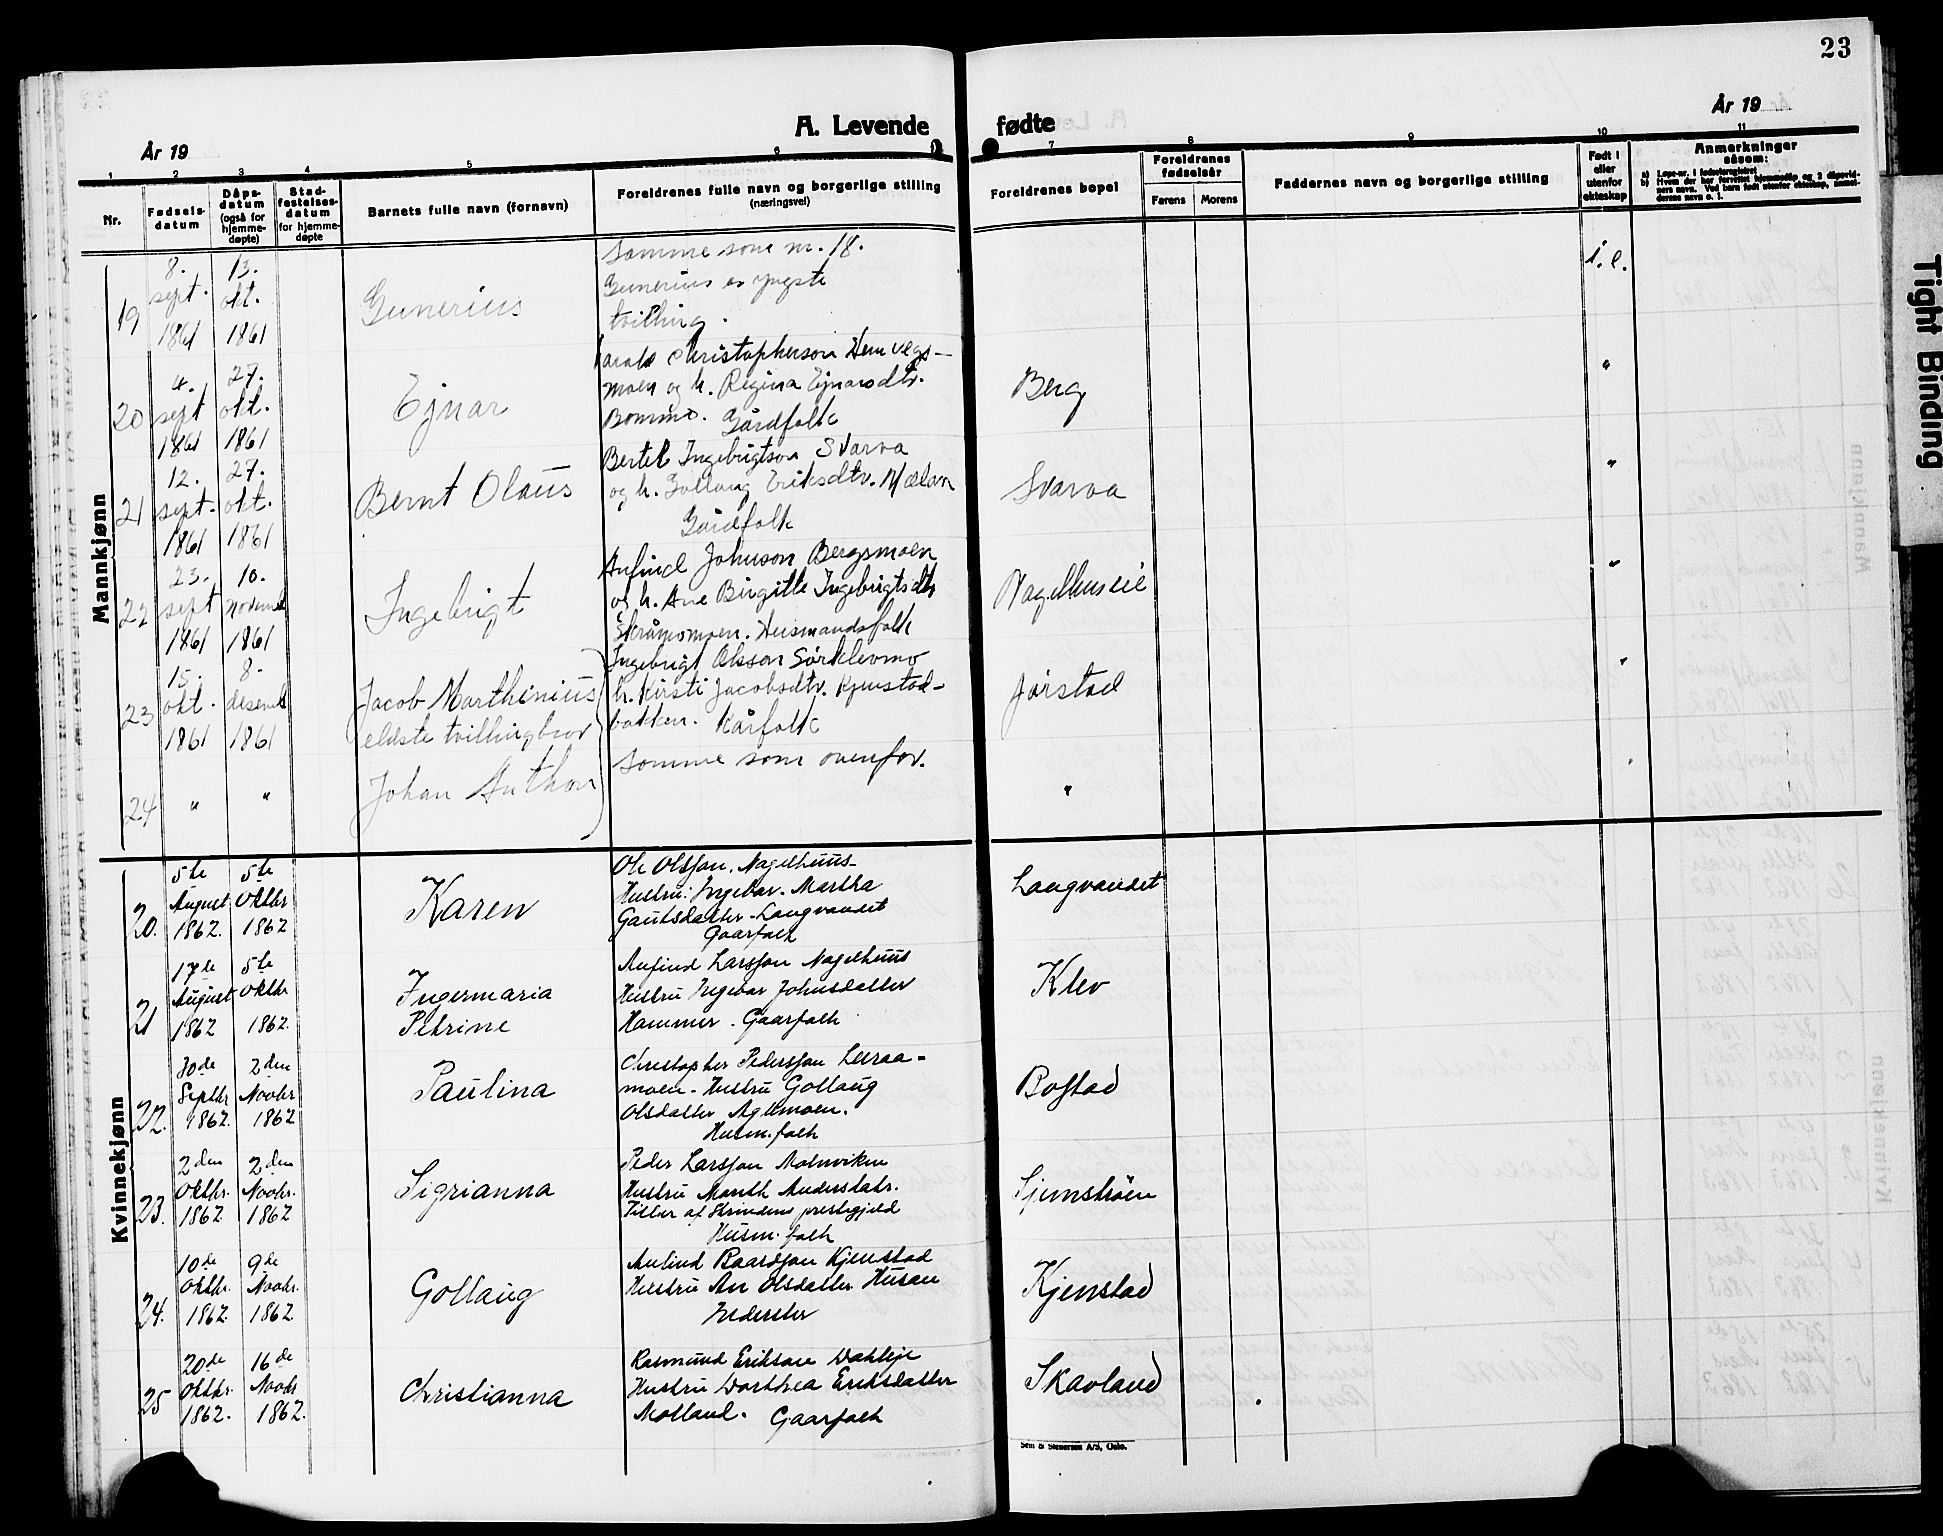 23
A. Levende fødte
År 19
År 19
1 2 3 4 5 6 7 8 9 10 11
Nr.
Fødsels-
datum
Dåps-
datum
(også for
hjemme-
døpte)
Stad-
festelses-
datum
for hjemme-
døpte
Barnets fulle navn (fornavn)
Foreldrenes fulle navn og borgerlige stilling
(næringsvei)
Foreldrenes bopel
Foreldrenes
fødselsår
Farens
Morens
Faddernes navn og borgerlige stilling
Født i
eller
utenfor
ekteskap
Anmerkninger
såsom:
a) Løpe-nr. i fødselsregistret
Tight Binding
Mannkjønn
19
8.
sept.
1861
13.
okt.
1861
Gunerius
Samme som nr. 18.
Gunerius er yngste
tvilling.
i. e.
20
4.
sept
1861
27.
okt.
1861
Ejnar
Christopherson Hemvegs-
moen og h. Regina Ejnarsdtr.
Gårdfolk
Berg
"
21
12.
sept.
1861
27.
okt.
1861
Bernt Olaus
Bertel Ingebrigtson Svarva
og h. Gollaug Eriksdtr. Mælen
Gårdfolk
Svarva
"
22
23.
sept
1861
10.
novemb
1861
Ingebrigt
Anfind Johnson Bergsmoen
og h. Ane Birgitte Ingebrigtsdtr
Husmandsfolk
Nagelhuseie
"
23
15.
okt.
1861
8.
desemb
1861
Jacob Marthinius
eldste tvillingbror
Ingebrigt Olsson Sørklevmo
h. Kirsti Jacobsdtr. Kjenstad-
bakken. Kårfolk
Jørstad
"
24
"
"
Johan Anthon
Samme som ovenfor.
"
Kvinnekjønn
20.
5te
August
1862.
5te
Oktbr
1862
Karen
Ole Olsson. Nagelhuus-
Hustru: Ingebor. Martha
Gautsdatter - Langvandet
Gaarfolk
Langvandet
21
17de
August
1862
5te
Oktbr
1862.
Ingermaria
Petrine
Anfind Larsson Nagelhuus
Hustru Ingebor Johnsdatter
Hammer. Gaarfolk
Klev
22.
30de
Septbr
1862.
2den
Novbr
1862
Paulina
Christopher Pedersson Leiraa-
moen - Hustru Gollaug
Olsdatter Aglemoen.
Husm. folk
Bostad
23.
2den
Oktbr.
1862.
2den
Novbr.
1862
Sigrianna
Peder Larsson Malmviken
Hustru Marith Andersdatr.
Tiller af Strindens prestegjeld
Husm. folk
24.
10de
Oktbr.
1862.
9de
Novbr.
1862.
Gollaug
Anfind Baardsson Kjenstad
Hustru An Olsdatter Husan
Inderster
Kjenstad
25
20de
Oktbr.
1862.
16de
Novbr
1862.
Christianna
Rasmund Eriksen
Hustru Dorthea Eriksdatter
Molland. Gaarfolk
Skavland
Sem & Stenersen A/S, Oslo.